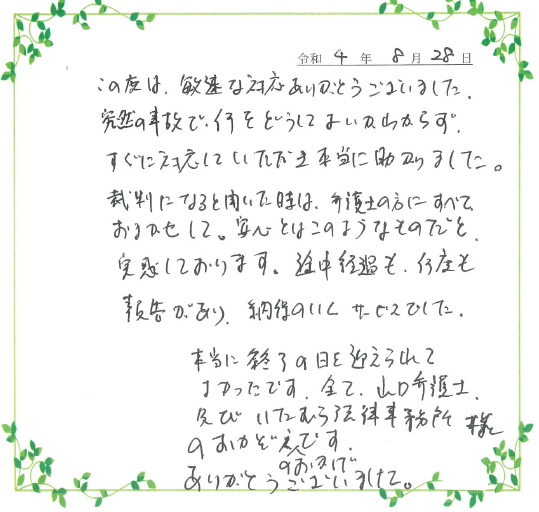 令和 4 年 8 月 28 日
この度は、敏速な対応ありがとうございました。
突然の事故で、何をどうしてよいかわからず、
すぐに対応していただき本当に助かりました。
裁判になると聞いた時は、弁護士の方にすべて
おまかせして。安心とはこのようなものだと、
実感しております。途中経過も、何度も
報告があり、納得のいくサービスでした。
本当に終了の日を迎えられて
よかったです。全て、山口弁護士、
及び いたむら法律事務所 様
のおかげです。
のおかげで
ありがとうございました。